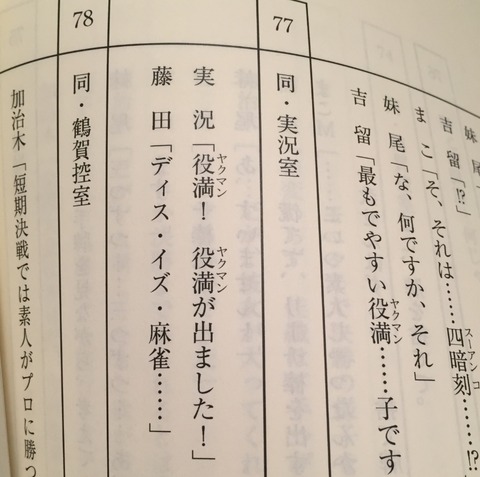 妹尾
吉留「!?」
まこ「そ、それは……四暗刻スーアンコ……!?
妹尾「な、何ですか、それ」
吉留「最もでやすい役満ヤクマン……子です
77
同・実況室
実況「役満ヤクマン! 役満ヤクマンが出ました!」
藤田「ディス・イズ・麻雀……」
78
同・鶴賀控室
加治木「短期決戦では素人がプロに勝つ